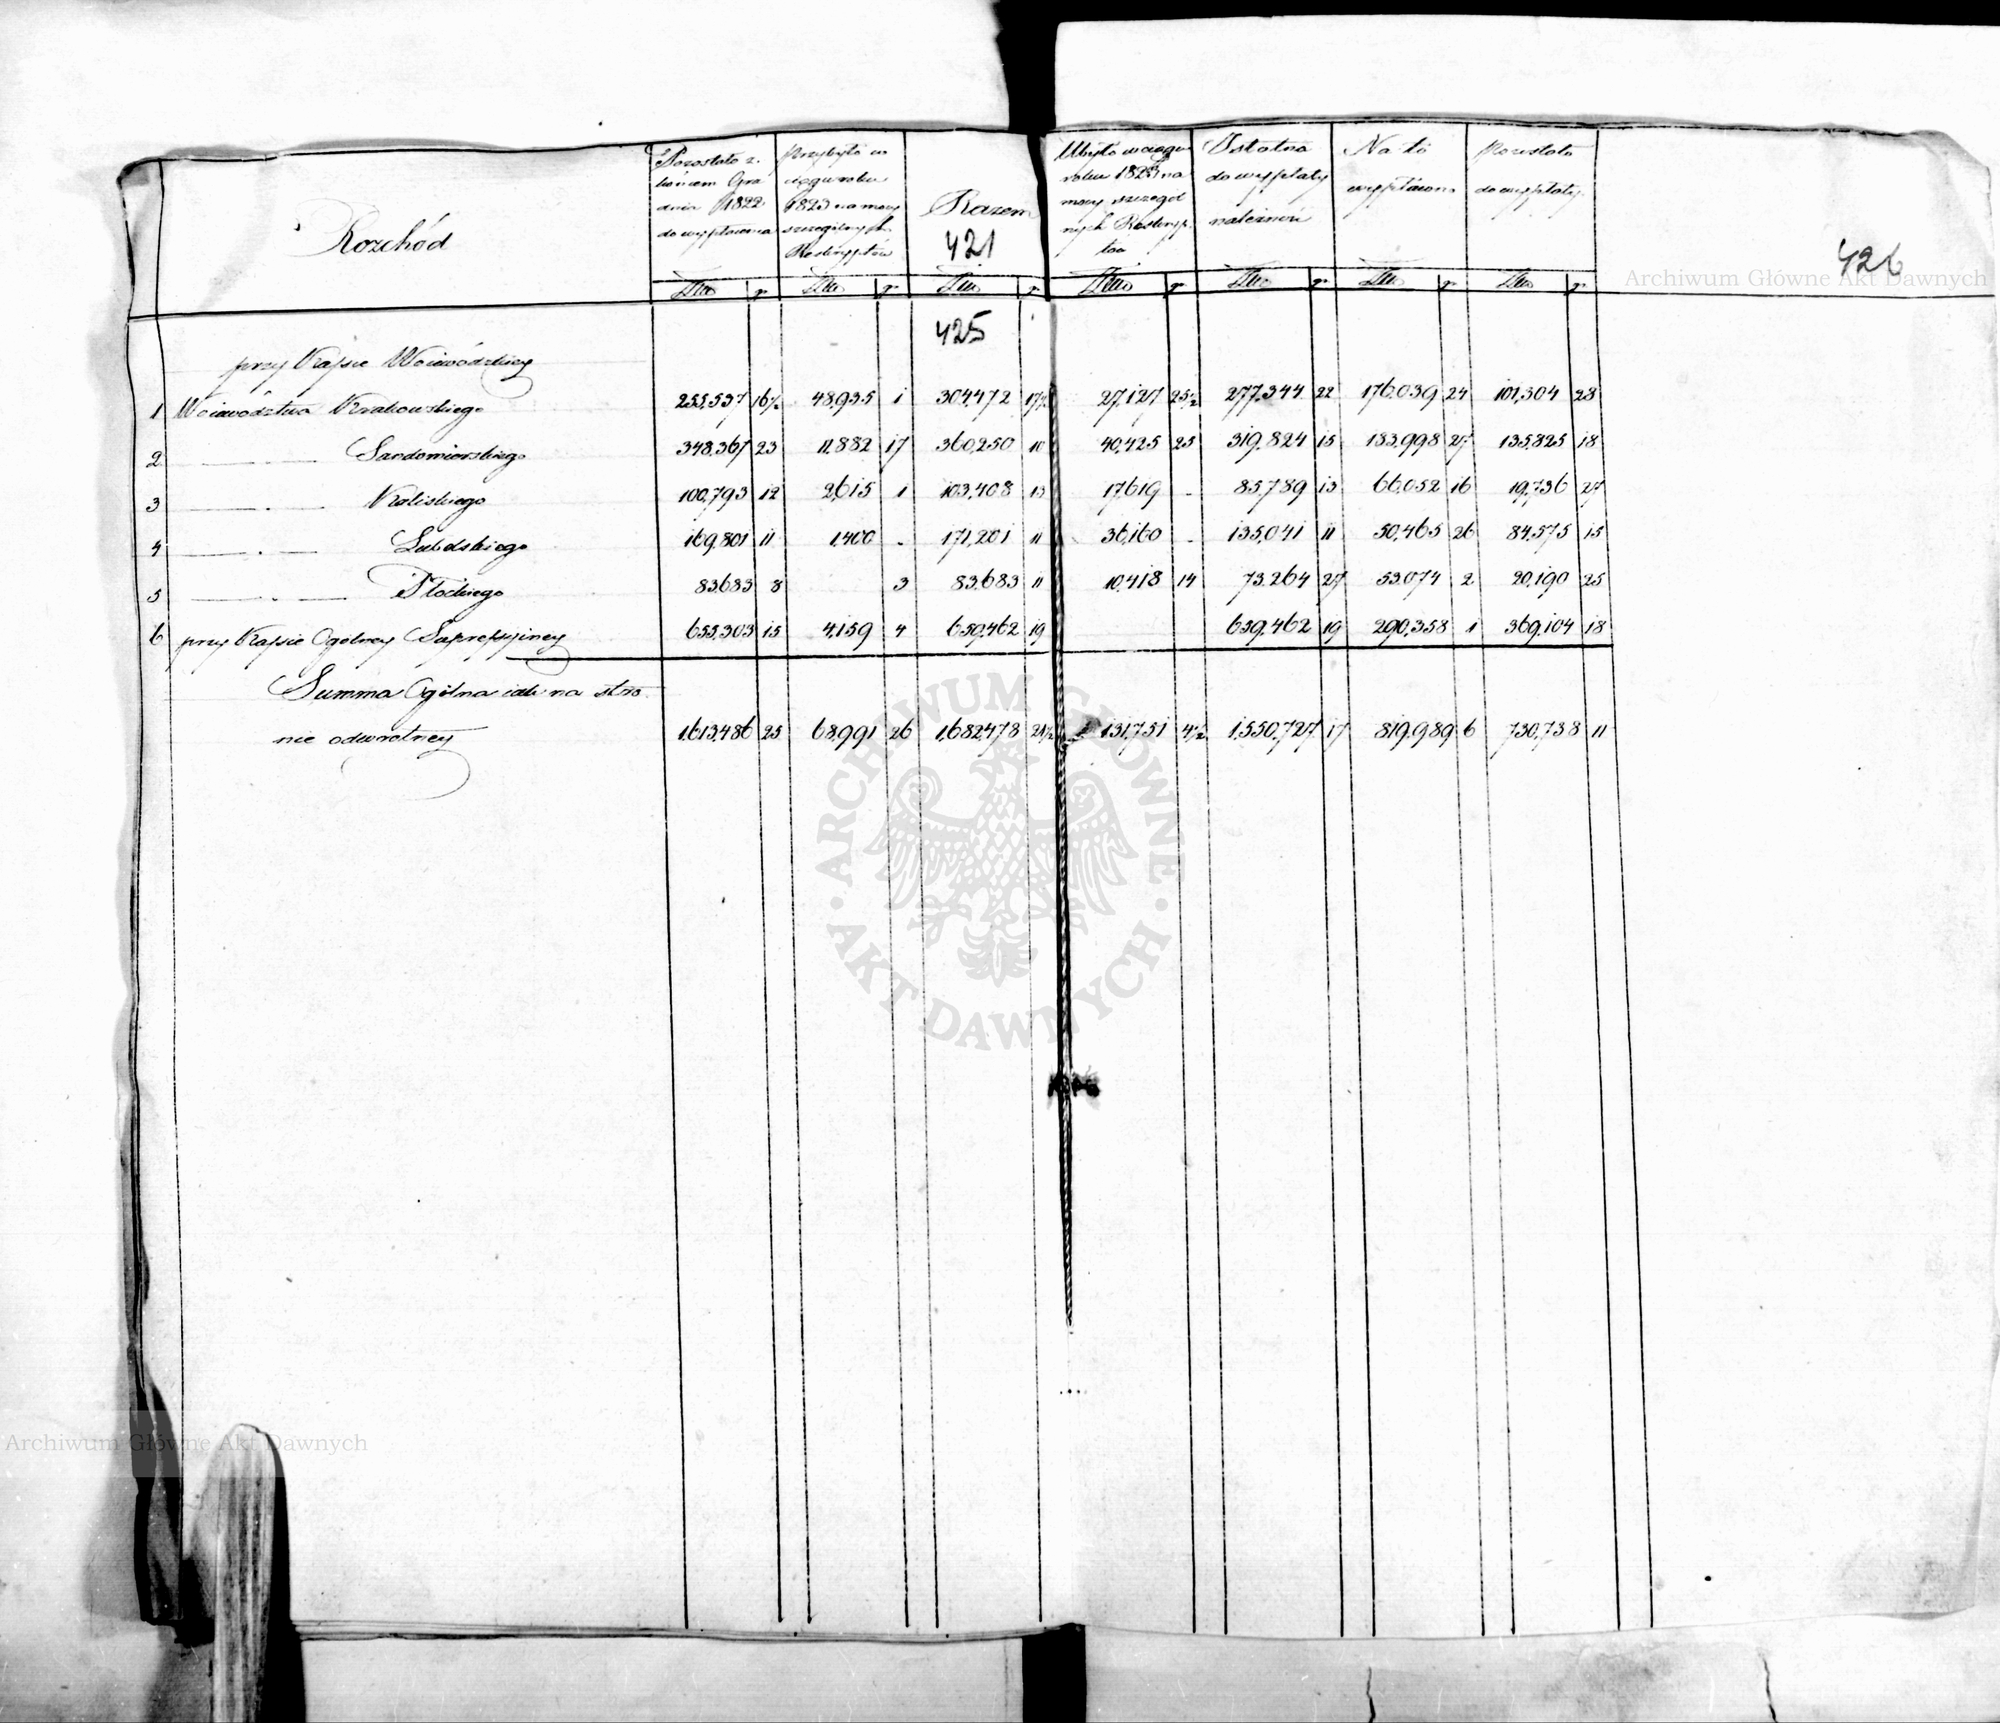 Rozchód
Pozostało z
końcem Gru
dnia 1822
do wypłacenia
Przybyło w
ciągu roku
1823 na mocy
szczególnych
Reskryptów
Razem
421
Ubyło w ciągu
roku 1823 na
mocy szczegól
nych Reskryp
tów
Ostatnia
do wypłaty
należność
Na to
wypłacono
Pozostało
do wypłaty
426
Archiwum Główne Akt Dawnych
425
przy Kassie Woiewódzkiey
1 Woiewództwa Krakowskiego 255,537 16½ 48,935 1 304,472 17½ 27,127 25½ 277,344 22 176,039 24 101,304 28
2 Sandomierskiego 348,367 23 11,882 17 360,250 10 40,425 25 319,824 15 183,998 27 135,825 18
3 Kaliskiego 100,793 12 2,615 1 103,408 13 17,619 - 85,789 13 66,052 16 19,736 27
4 Lubelskiego 169,801 11 1,400 - 171,201 11 36,160 - 135,041 11 50,465 26 84,575 15
5 Płockiego 83,683 8 3 83,683 11 10,418 14 73,264 27 53,074 2 20,190 25
6 przy Kassie Ogólney Supressyiney 655,303 15 4,159 4 659,462 19 659,462 19 290,358 1 369,104 18
Summa Ogólna idzie na stro
nie odwrotney 1,613,486 25 68,991 26 1,682,478 21½ 131,751 4½ 1,550,727 17 819,989 6 730,738 11
ARCHIWUM GŁÓWNE
AKT DAWNYCH
Archiwum Główne Akt Dawnych